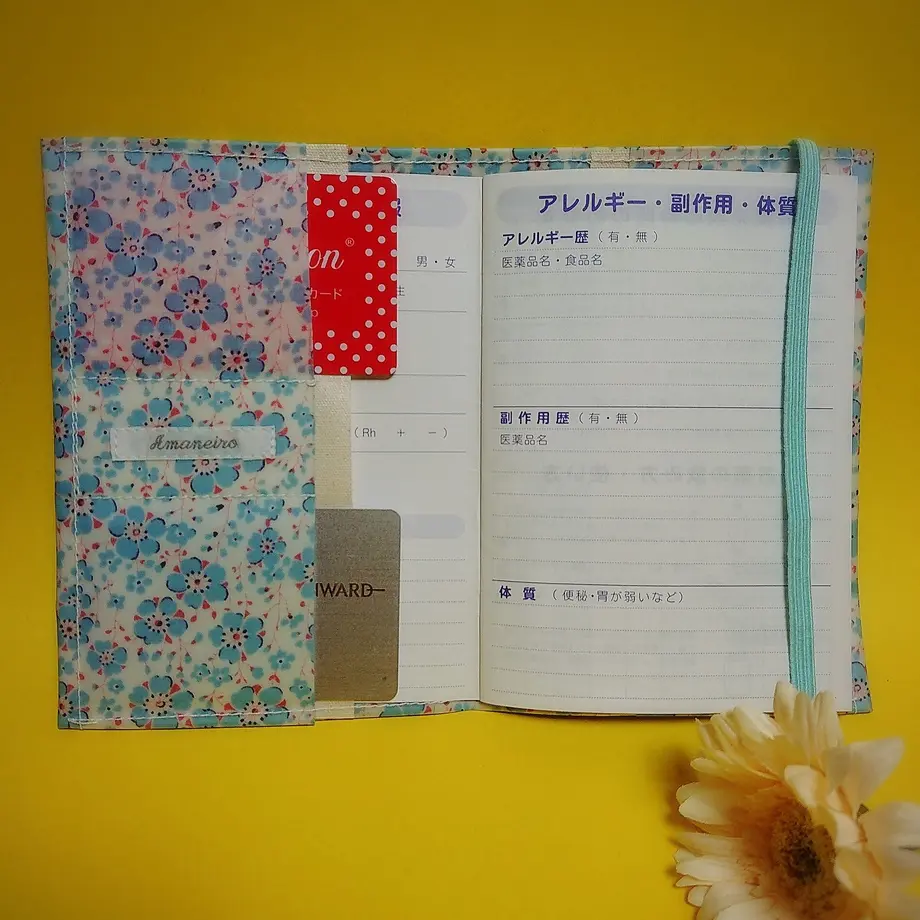 Amaneiro
on®
カード
男・女
（Rh ＋ －）
NWARD
アレルギー・副作用・体質
アレルギー歴（有・無）
医薬品名・食品名
副作用歴（有・無）
医薬品名
体質（便秘・胃が弱いなど）